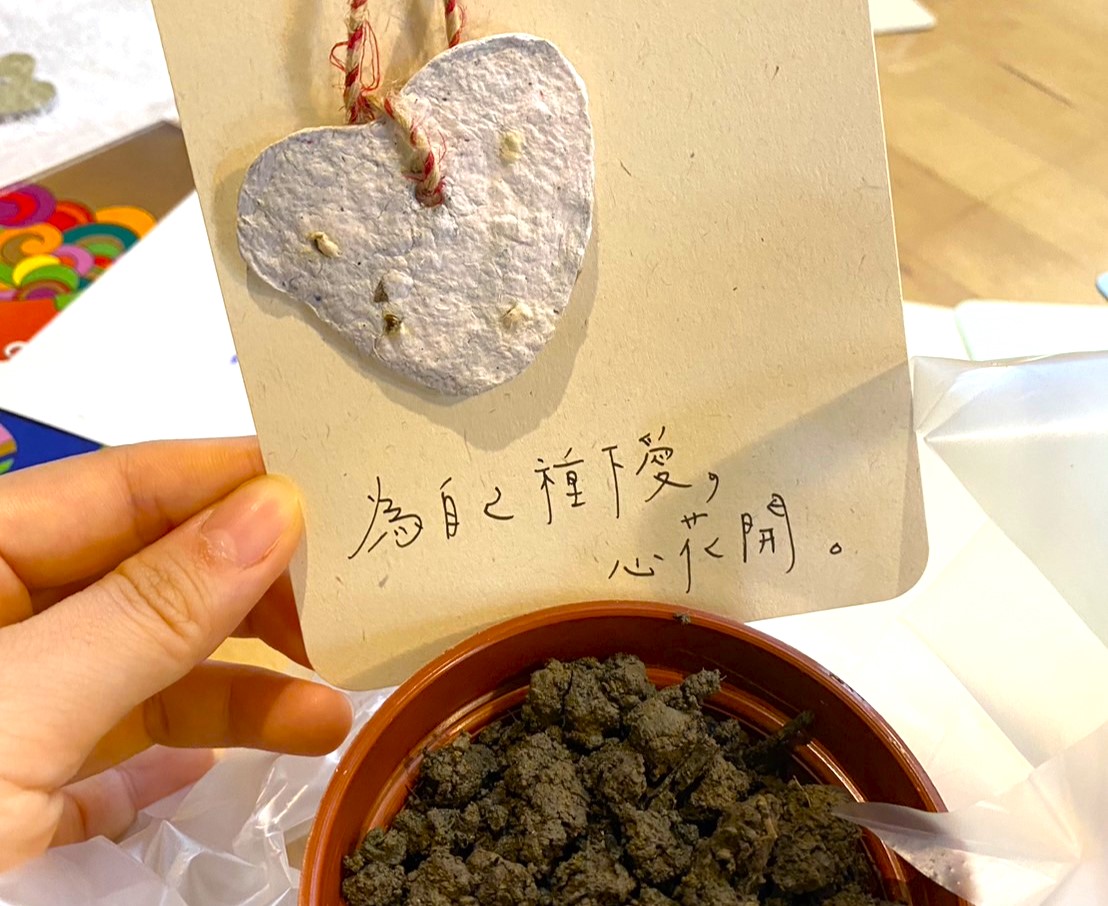 為自己種下愛，
心花開。